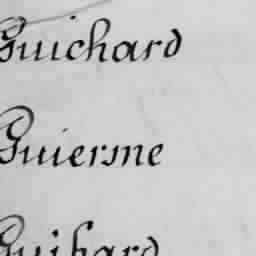 Guichard
Guierme
Guihard